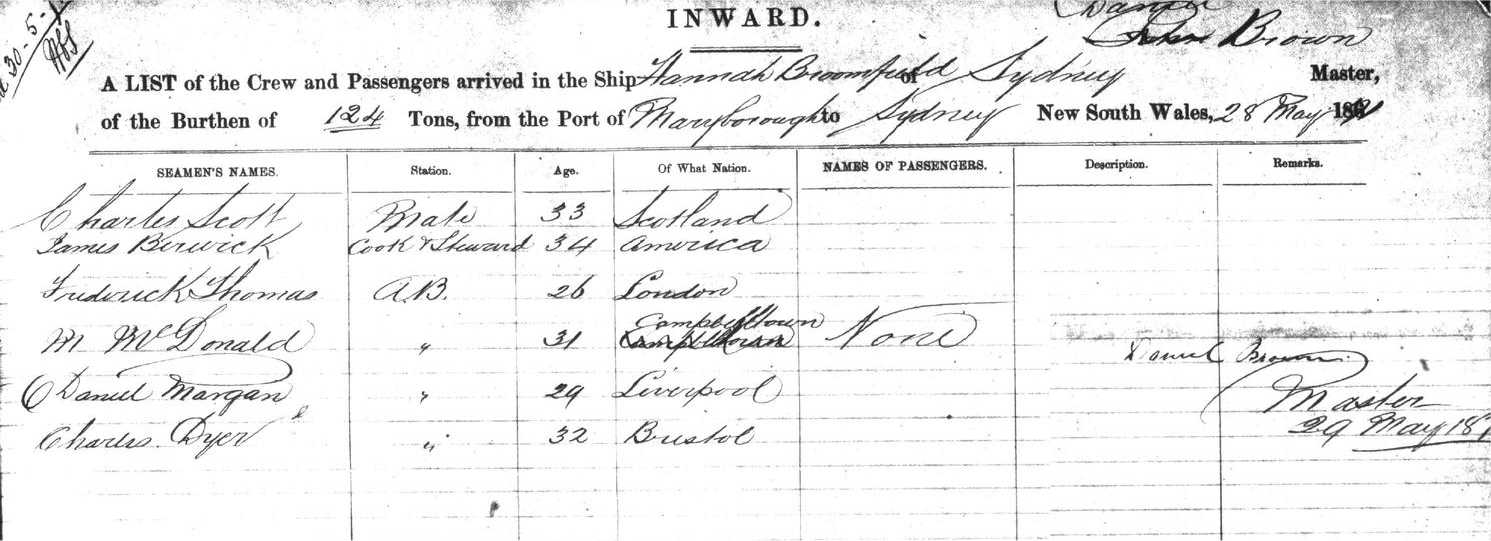 INWARD.
30-5-
Daniel
John Brown
A LIST of the Crew and Passengers arrived in the Ship Hannah Broomfield of Sydney Master,
of the Burthen of 124 Tons, from the Port of Maryborough to Sydney New South Wales, 28 May 18
SEAMEN'S NAMES. Station. Age. Of What Nation. NAMES OF PASSENGERS. Description. Remarks.
Charles Scott Mate 33 Scotland
James Berwick Cook & Steward 34 America
Frederick Thomas A.B. 26 London
Campbelltown
M McDonald " 31 Campbelltown None
Daniel Brown
Daniel Morgan " 29 Liverpool Master
Charles Dyer " 32 Bristol 29 May 18